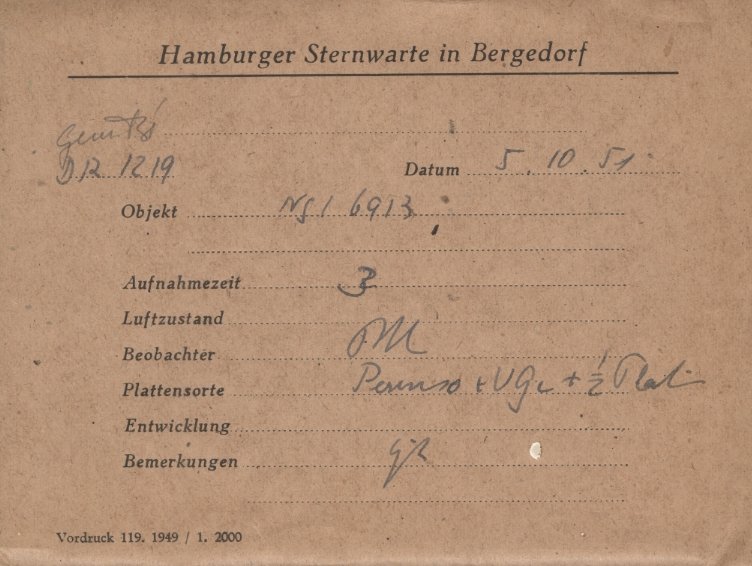 Hamburger Sternwarte in Bergedorf
DR 1219
Datum 5. 10. 51.
Objekt NGC 6913
Aufnahmezeit 3
Luftzustand
Beobachter
Plattensorte + VG + 1/2
Entwicklung
Bemerkungen
Vordruck 119. 1949 / 1. 2000